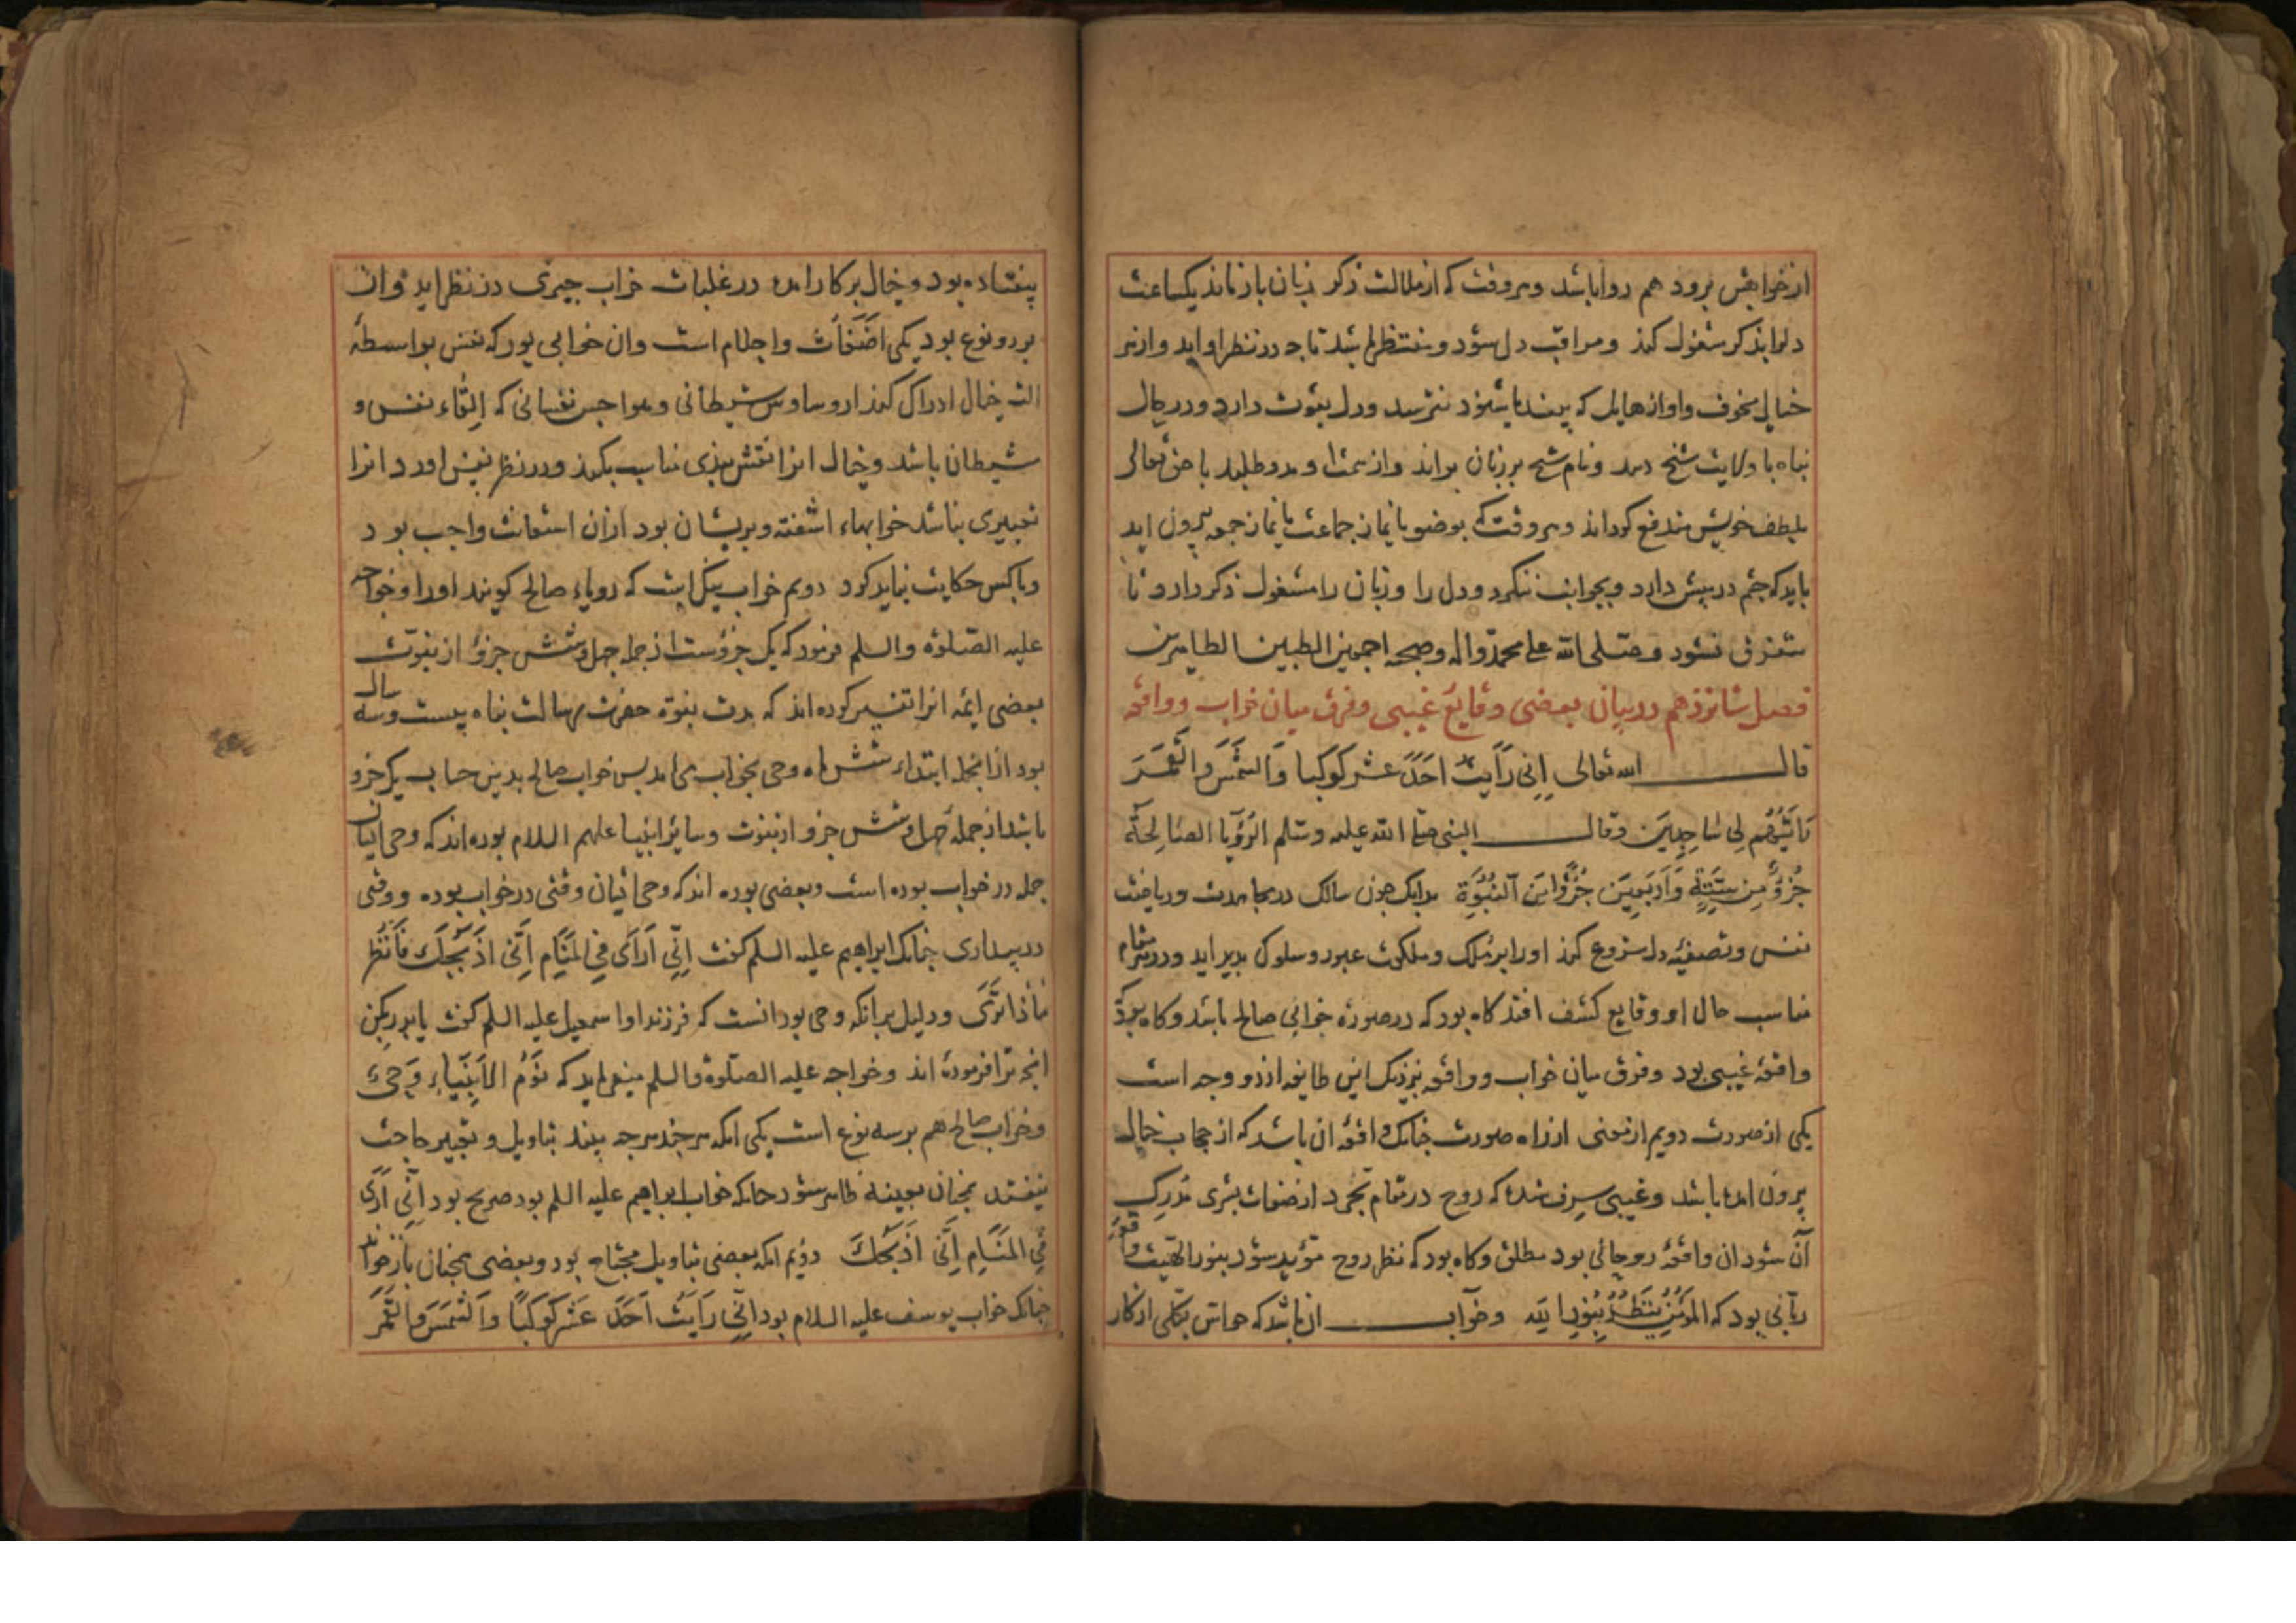 از خوابش برود هم روا باشد و هر وقت که از ملالت ذکر زبان باز ماند یکساعت
دلرا بذکر مشغول کند و مراقب دل شود و منتظر باشد تا چه در نظر او اید و از هر
خیالی مخوف و اواز هایل که بیند یا شنود نترسد ودل بثوت دارد و در حال
پناه با ولایت شیخ دهد و نام شیخ بر زبان براند و از همت او مدد طلبد تا حق تعالی
بلطف خویش مندفع کرداند و هر وقت که بوضو یا نماز جماعت یا نماز جمعه بیرون اید
باید که چشم در پیش دارد و بجوانب ننکرد و دل را و زبان را مشغول ذکر دارد تا
متفرق نشود وصلی الله علی محمد واله وصحبه اجمعین الطیبین الطاهرین
فصل شانزدهم در بیان بعضی وقایع غیبی و فرق میان خواب و واقعه
قال الله تعالی اِنّی رَاَیتُ احَدَ عشر کوکبا وَالشَّمسَ والْقَمَرَ
رَاَیْتُهُم لی سٰاجِدِینَ وقال النبی صلی الله علیه وسلم الرُؤیا الصٰالِحَةُ
جُزءٌ مِن سِتَّةٍ وَاَربَعِینَ جُزءًا مِنَ النُبُوَّةِ بدانک چون سالک در مجاهدت و ریاضت
نفس و تصفیۀ دل شروع کند او را بر ملک و ملکوت عبور و سلوک پدید اید و در هر مقام
مناسب حال او وقایع کشف افتد کاه بود که در صورة خوابی صالح باشد و کاه بود که
واقعۀ غیبی بود و فرق میان خواب و واقعه بنزدیک این طایفه از دو وجه است
یکی از صورت دویم از معنی از راه صورت چنانک واقعه ان باشد که از حجاب خیال
برون امده باشد و غیبی صرف شده که روح در مقام تجرد از صفات بشری مُدرِک
آن شود ان واقعۀ روحانی بود مطلق و کاه بود که نظر روح مؤید شود بنور الهیت واقعۀ
ربّانی بود که المؤمِنُ یَنْظُرُ بِنُورِ الله وخواب ان باشد که حواس بکلی از کار
بیفتاده بود و خیال بر کار امده در غلبات خواب چیزی در نظر اید و ان
بر دو نوع بود یکی اضغاث و احلام است و ان خوابی بود که نفس بواسطۀ
الت خیال ادراک کند از وساوس شیطانی و هواجس نفسانی که اِلقاء نفس و
شیطان باشد و خیال انرا نقش بندی مناسب بکند و در نظر نفس اورد انرا
تعبیری نباشد خوابهاء اشفته و پریشان بود از ان استعاذت واجب بود
و با کس حکایت نباید کرد دویم خواب نیک است که رویاء صالح کویند او را و خواجه
علیه الصلوة والسلم فرمود که یک جزوست از جمله چهل و شش جزؤ از نبوّت
بعضی ایمه انرا تفسیر کرده اند که مدت نبوة حضرت رسالت پناه بیست وسه سال
بود از انجمله ابتداء شش ماه وحی بخواب می امد پس خواب صالح بدین حساب یک جزو
باشد از جمله چهل و شش جزو از نبوت وسایر انبیا علیهم السلام بوده اند که وحی ایشان
جمله در خواب بوده است و بعضی بوده اند که وحی ایشان وقتی در خواب بوده و وقتی
در بیداری چنانک ابراهیم علیه السلم کفت اِنّی اَرَای فِی المَنٰام اَنّی اذبَحُکَ فَانْظُر
مٰاذا تَرَی و دلیل برانکه وحی بود انست که فرزند او اسمعیل علیه السلم کفت یا پدر بکن
انچه ترا فرموده اند و خواجه علیه الصلوة والسلم میفرماید که نَومُ الاَنبِیاءِ وَحیٌ
و خواب صالح هم بر سه نوع است یکی انکه هر چند هرچه بیند بتاویل و تعبیر حاجت
نیفتد همچنان بعینه ظاهر شود چنانکه خواب ابراهیم علیه السلم بود صریح بود اِنّی اَرَی
فی المَنٰامِ اَنّی اَذبَحُکَ دویم انکه بعضی بتاویل محتاج بود و بعضی همچنان باز خواند
چنانک خواب یوسف علیه السلام بود اِنّی رَایتُ اَحَدَ عَشَر کَوکَبًا وَالشَّمسَ وَالقَمَرَ